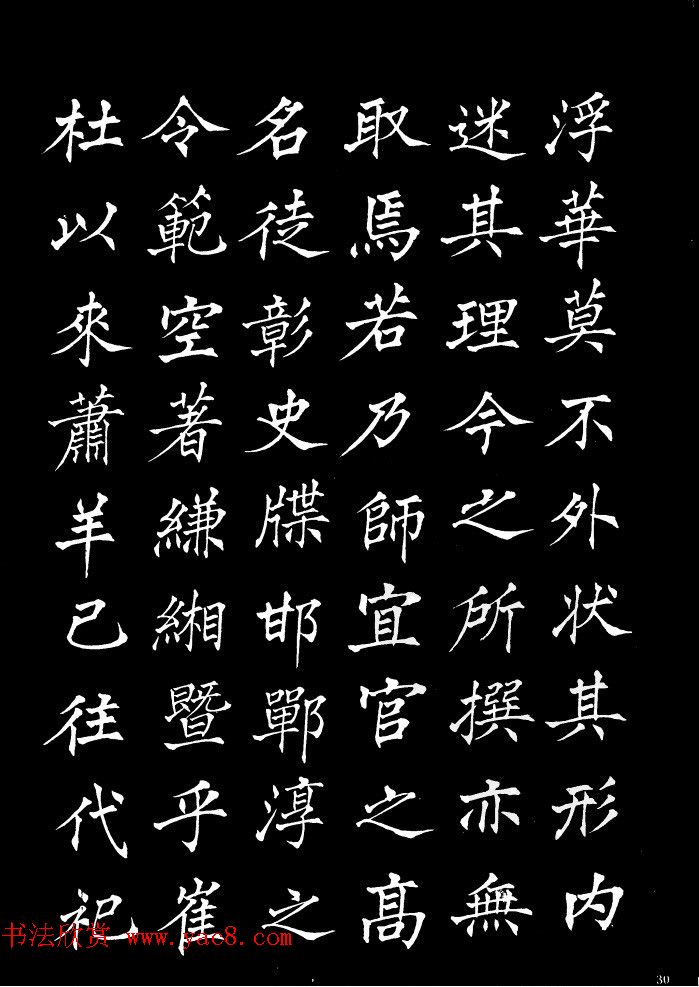 浮華莫不外狀其形内
迷其理今之所撰亦無
取焉若乃師宜官之髙
名徒彰史牒邯鄲淳之
令範空著縑緗暨乎崔
杜以來蕭羊已往代祀
书法欣赏 www.yac8.com
30